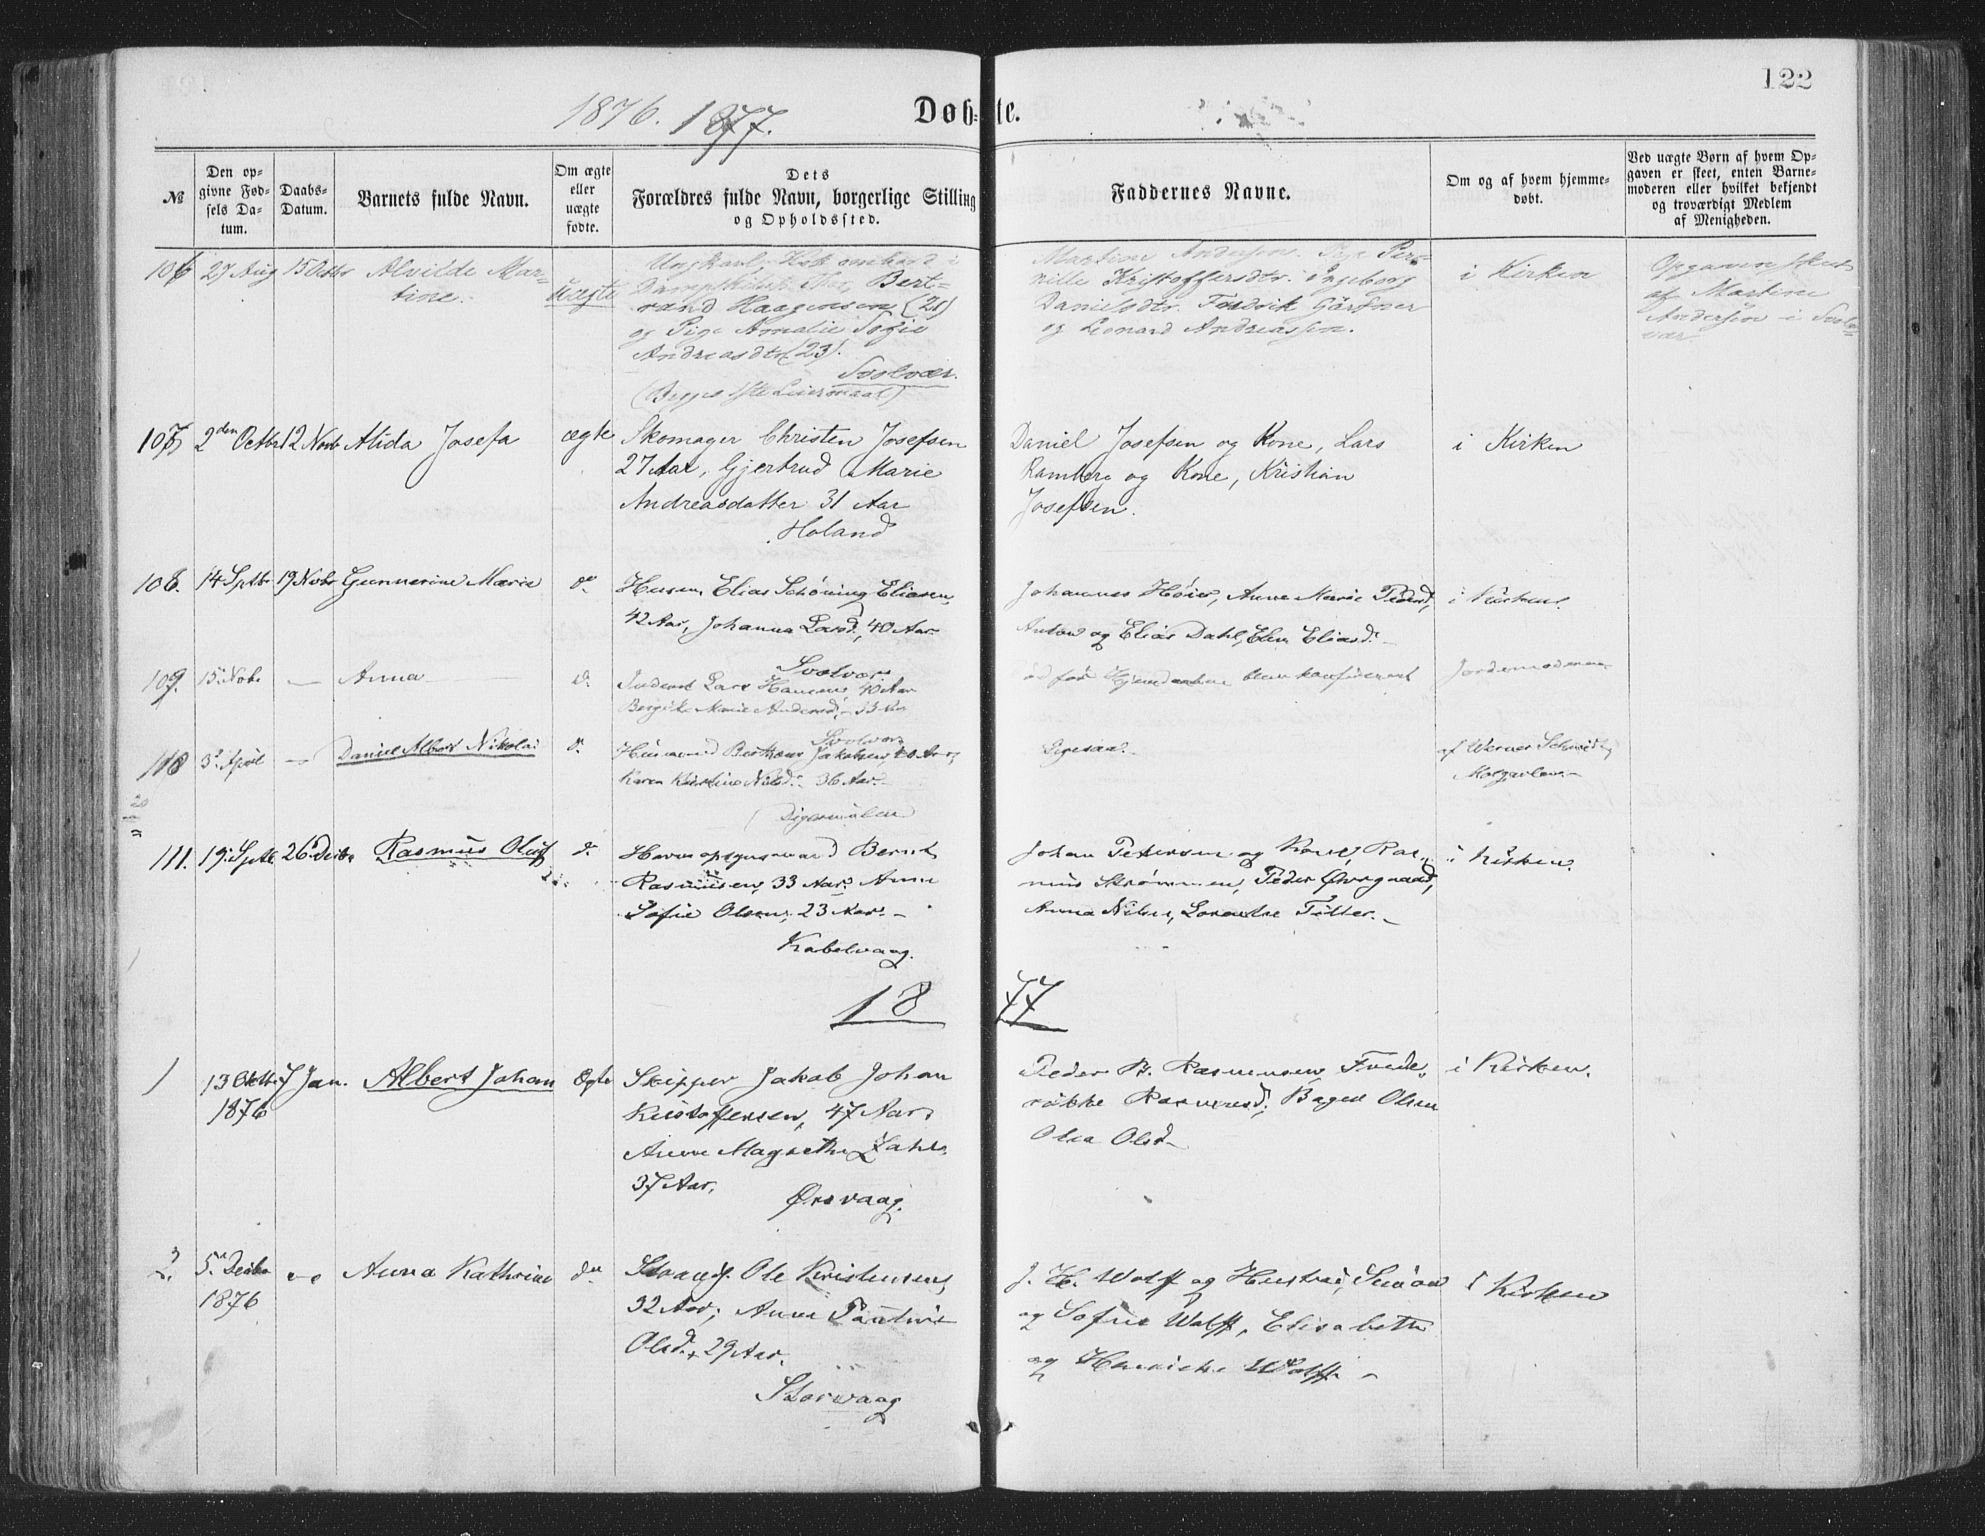 122
1876. 1877.
Døbte.
№
Den opgivne Fødsels Datum.
Daabs-Datum.
Barnets fulde Navn.
Om ægte eller uægte fødte.
Dets Forældres fulde Navn, borgerlige Stilling og Opholdssted.
Faddernes Navne.
Om og af hvem hjemmedøbt.
Ved uægte Børn af hvem Opgaven er skeet, enten Barnemoderen eller hvilket bekjendt og troværdigt Medlem af Menigheden.
106 27 Aug 15 Octbr Alvilde Martine.
uægte
Ungkarl, Kok ombord i
Dampskibet Thor Bertrand
Haagensen (21)
og Pige Amalie Sofie
Andreasdtr (23).
Svolvær.
(Begges 1ste Leiermaal)
Martine Andersen. Pige Pernille
Kristoffersdtr. Ingeborg
Danielsdtr. Fredrik Gärtner
og Leonard Andreassen.
i Kirken
Opgaven skeet
af Martine
Andersen i Svolvær
107 2den Octbr 12 Novb Alida Josefa
ægte
Skomager Christen Josefsen
27 Aar, Gjertrud Marie
Andreasdatter 31 Aar
Holand
Daniel Josefsen og Kone, Lars
Ramberg og Kone, Kristian
Josefsen.
i Kirken
108. 14 Sptbr 19 Novbr Gunnerine Marie
do
Husm. Elias Schöning Eliasen,
42 Aar, Johanna Larsd, 40 Aar
Svolvær
Johannes Höier, Anne Marie Pedersd,
Anton og Elias Dahl, Elen Eliasd.
i Kirken.
109. 15 Novbr — Anna
d.
Lars Hansen, 40 Aar
Bergithe Marie Andersd, 33 Aar
Svolvær
död før Hjemdaaben blev konfirmeret
Jordemoderen
110 3 April — Daniel Albert Nikolai
d.
Husmand Jakobsen, 40 Aar,
Karen Kristine Nilsd. 36 Aar.
Digermulen
ligesaa.
af Werner
111. 19 Sptb. 26 Decbr Rasmus Oluf
d.
Havneopsynsmand Bernt
Rasmussen, 33 Aar. Anne
Sofie Olsen, 23 Aar. —
Kabelvaag.
Johan Petersen og Kone, Rasmus
Strömmen, Peder Övergaard,
Anna Nilsen, Lorentse Fölter. —
i Kirken.
1877
1 13 Oktbr 1876 7 Jan. Albert Johan
Ægte
Skipper Jakob Johan
Kristoffersen, 47 Aar,
Anne Magrethe Zahl,
37 Aar.
Ørsvaag.
Peder B. Rasmussen, Frederikke
Rasmusd, Baged Olsen
Olea Olsd
i Kirken.
2. 5 Decbr 1876 Anna Kathrine
do
Strands. Ole Kristensen,
32 Aar; Anne Pauline
Olsd. 29 Aar.
Storvaag
J. H. Wolff og Hustru, Simon
og Sofie Wolff, Elisabeth
og Henrikke Wolff —
i Kirken